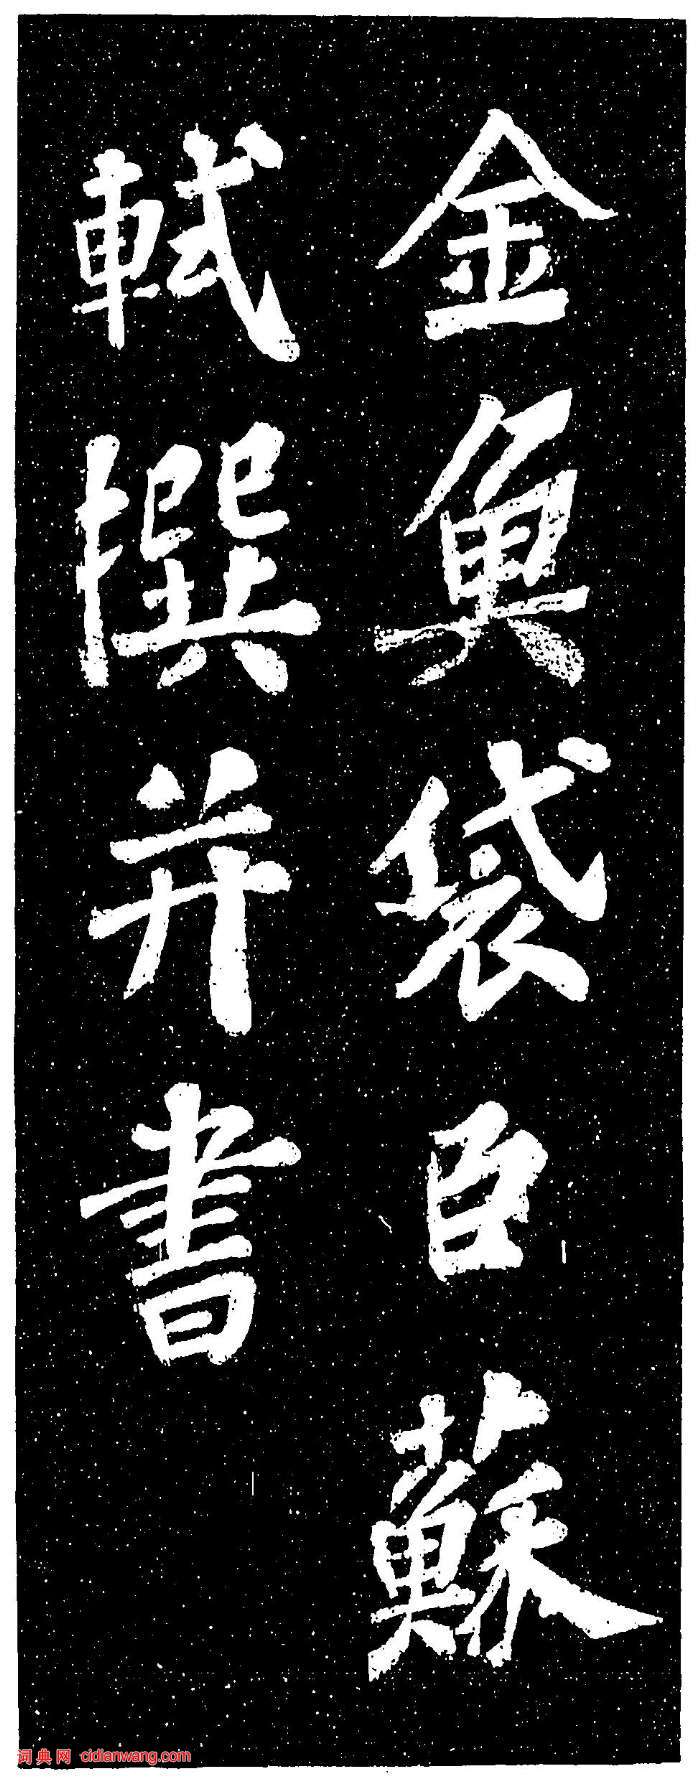 金魚袋臣蘇
軾撰并書
词典网 cidianwang.com